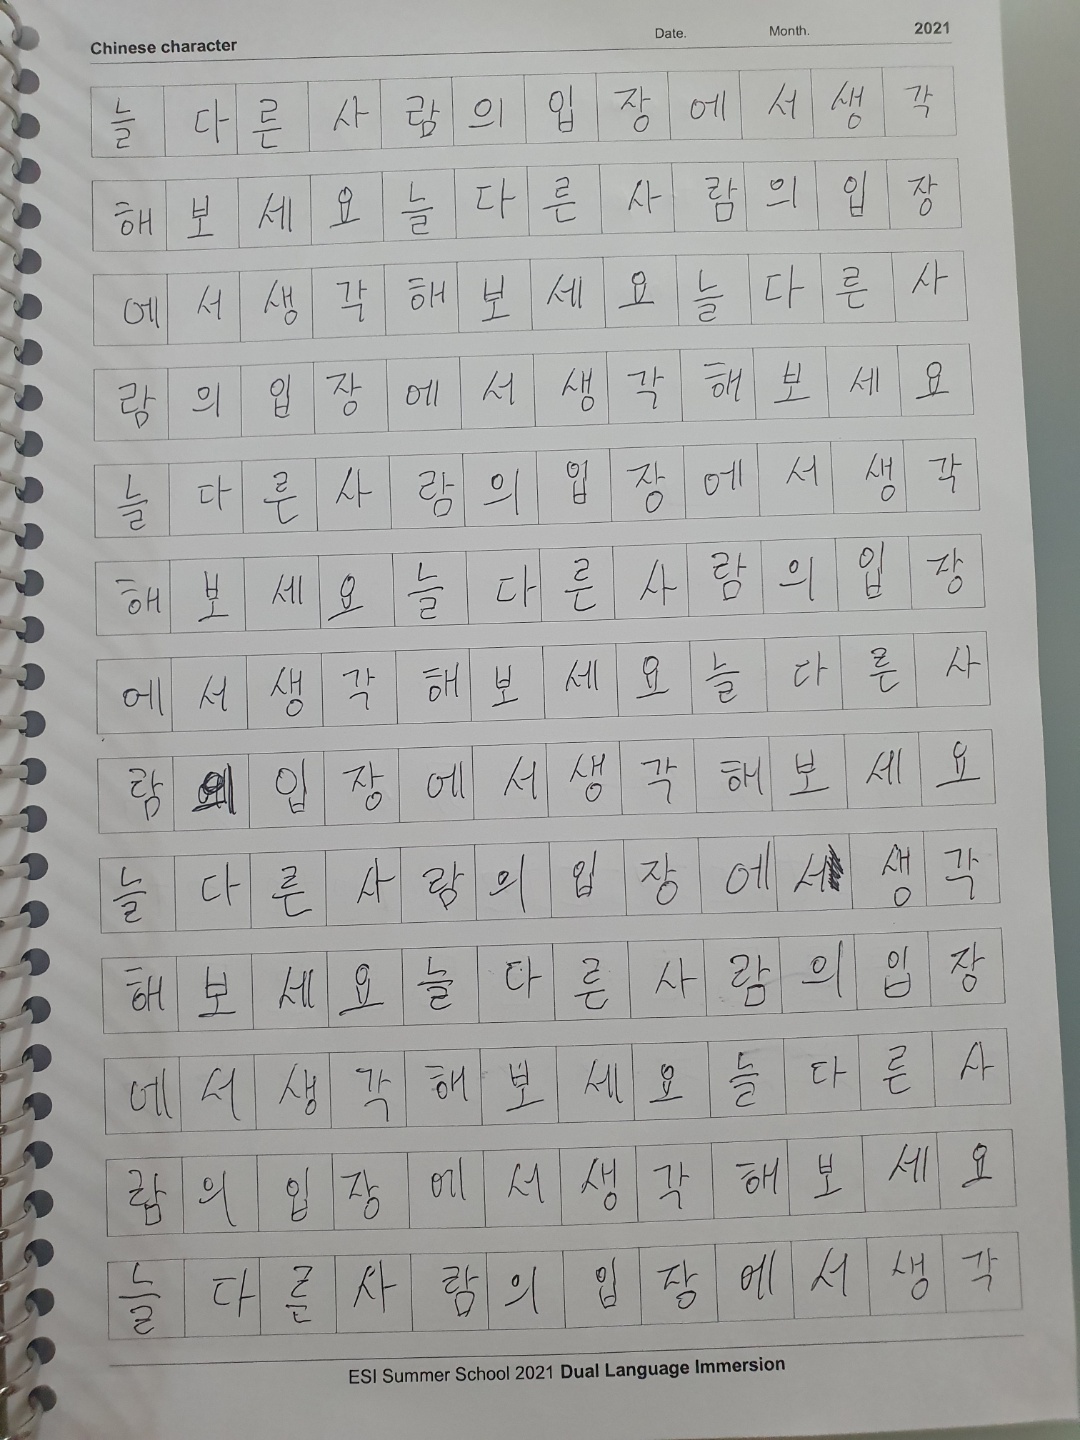 Chinese character Date. Month. 2021
늘다른사람의입장에서생각
해보세요늘다른사람의입장
에서생각해보세요늘다른사
람의입장에서생각해보세요
늘다른사람의입장에서생각
해보세요늘다른사람의입장
에서생각해보세요늘다른사
람입장에서생각해보세요
늘다른사람의입장에서생각
해보세요늘다른사람의입장
에서생각해보세요늘다른사
람의입장에서생각해보세요
늘다른사람의입장에서생각
ESI Summer School 2021 Dual Language Immersion